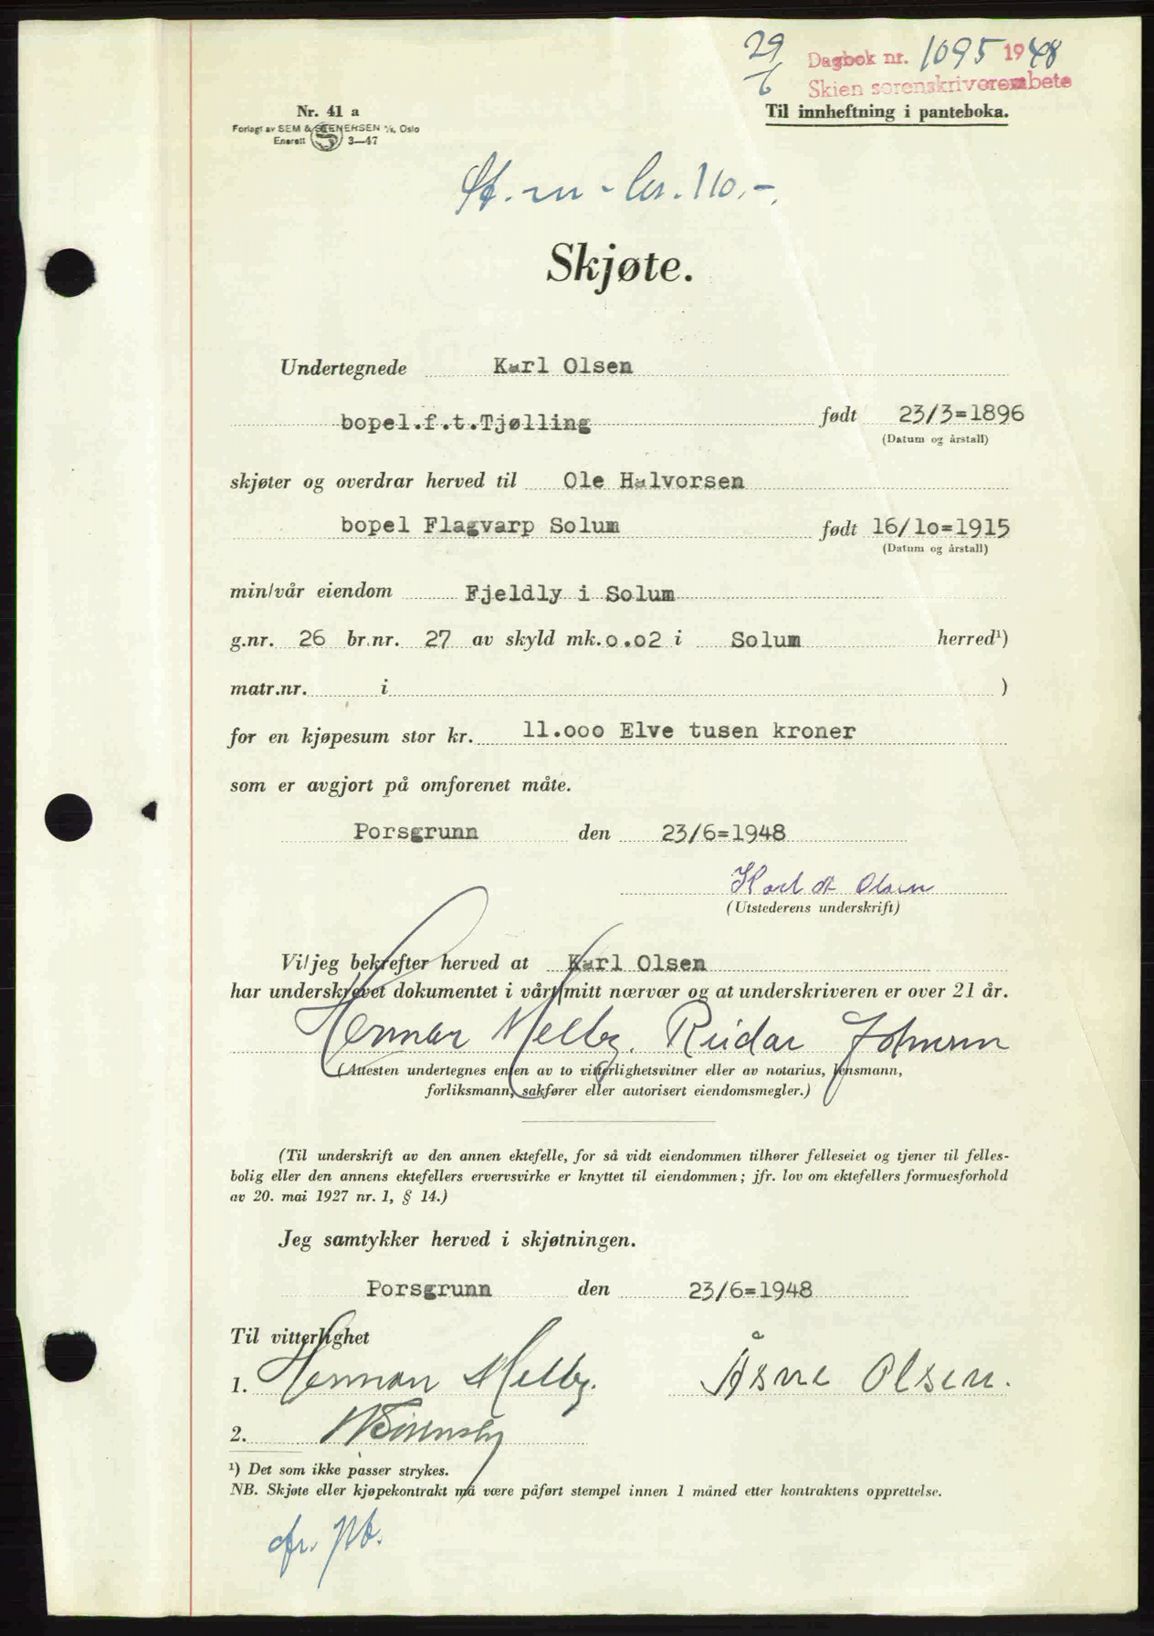 29/6 Dagbok nr. 1095 1948
Skien sorenskriverembete
Nr. 41 a
Forlagt av SEM & STENERSEN A/S, Oslo
Enerett 3—47
Til innheftning i panteboka.
St. m - kr. 110.-.
Skjøte.
Undertegnede Karl Olsen
bopel.f.t.Tjølling født 23/3=1896
(Datum og årstall)
skjøter og overdrar herved til Ole Halvorsen
bopel Flagvarp Solum født 16/10=1915
(Datum og årstall)
min/vår eiendom Fjeldly i Solum
g.nr. 26 br.nr. 27 av skyld mk. 0.02 i Solum herred¹)
matr.nr. i )
for en kjøpesum stor kr. 11.000 Elve tusen kroner
som er avgjort på omforenet måte.
Porsgrunn den 23/6=1948
Karl A Olsen
(Utstederens underskrift)
Vi/jeg bekrefter herved at Karl Olsen
har underskrevet dokumentet i vårt/mitt nærvær og at underskriveren er over 21 år.
Herman Melby. Reidar Johnsen
(Attesten undertegnes enten av to vitterlighetsvitner eller av notarius, lensmann,
forliksmann, sakfører eller autorisert eiendomsmegler.)
(Til underskrift av den annen ektefelle, for så vidt eiendommen tilhører felleseiet og tjener til felles-
bolig eller den annens ektefellers ervervsvirke er knyttet til eiendommen; jfr. lov om ektefellers formuesforhold
av 20. mai 1927 nr. 1, § 14.)
Jeg samtykker herved i skjøtningen.
Porsgrunn den 23/6=1948
Til vitterlighet
1. Herman Melby. Åsne Olsen.
2.
¹) Det som ikke passer strykes.
NB. Skjøte eller kjøpekontrakt må være påført stempel innen 1 måned etter kontraktens opprettelse.